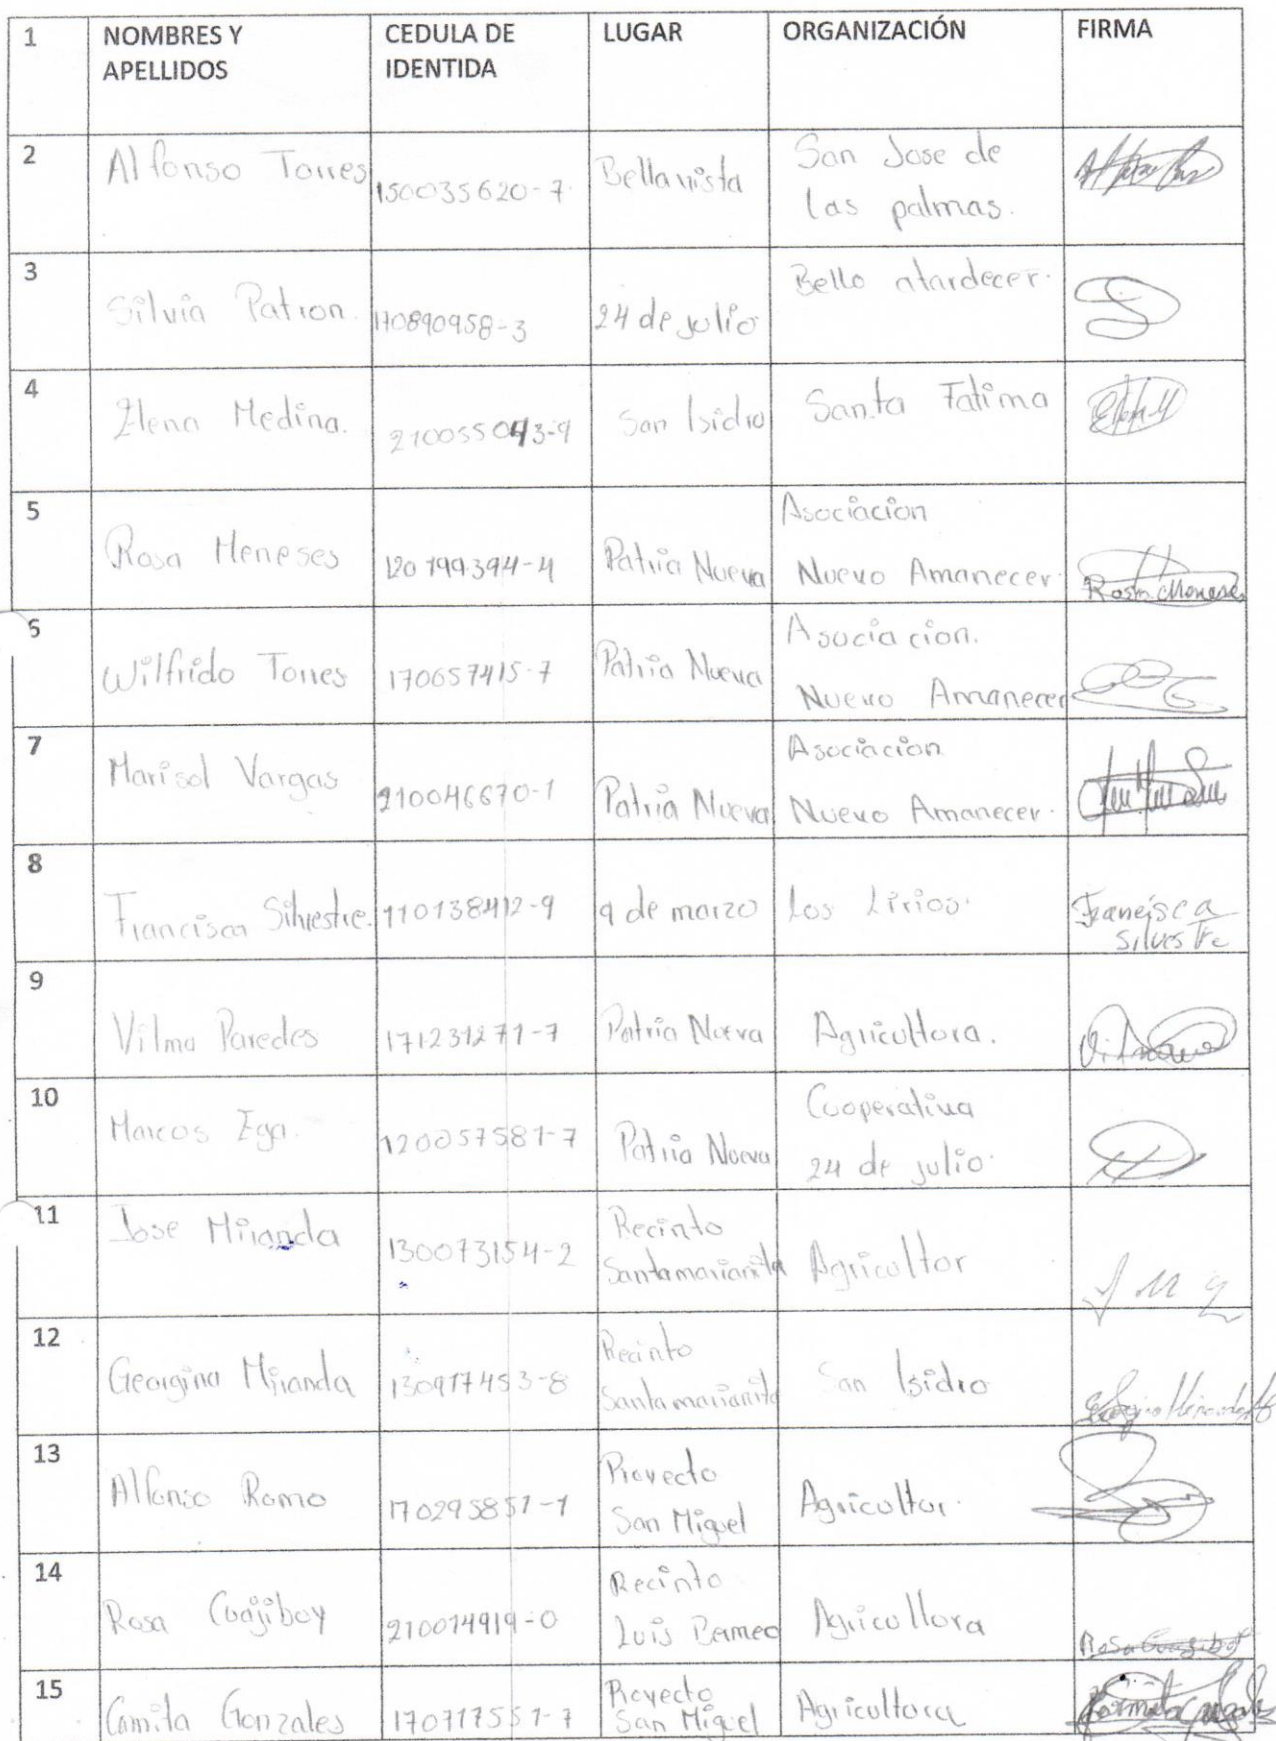 1 NOMBRES Y APELLIDOS CEDULA DE IDENTIDA LUGAR ORGANIZACIÓN FIRMA
2 Alfonso Torres 150035620-7 Bellavista San Jose de las palmas.
3 Silvia Patron. 170890958-3 24 de julio Bello atardecer.
4 Elena Medina. 210055043-9 San Isidro Santa Fatima
5 Rosa Meneses 120799394-4 Patria Nueva Asociacion Nuevo Amanecer. Rosa Meneses
6 Wilfrido Torres 170657415-7 Patria Nueva Asociacion. Nuevo Amanecer
7 Marisol Vargas 210046670-1 Patria Nueva Asociacion Nuevo Amanecer.
8 Francisca Silvestre. 110138412-9 9 de marzo Los Lirios. Francisca Silvestre
9 Vilma Paredes 171231271-7 Patria Nueva Agricultora.
10 Marcos Ega. 120057581-7 Patria Nueva Cooperativa 24 de julio.
11 Jose Miranda 130073154-2 Recinto Santamarianita Agricultor
12 Georgina Miranda 130917453-8 Recinto Santamarianita San Isidro
13 Alfonso Romo 170295851-1 Proyecto San Miguel Agricultor.
14 Rosa Cuajiboy 210014919-0 Recinto Luis Bermeo Agricultora
15 Camita Gonzales 170717551-7 Proyecto San Miguel Agricultora